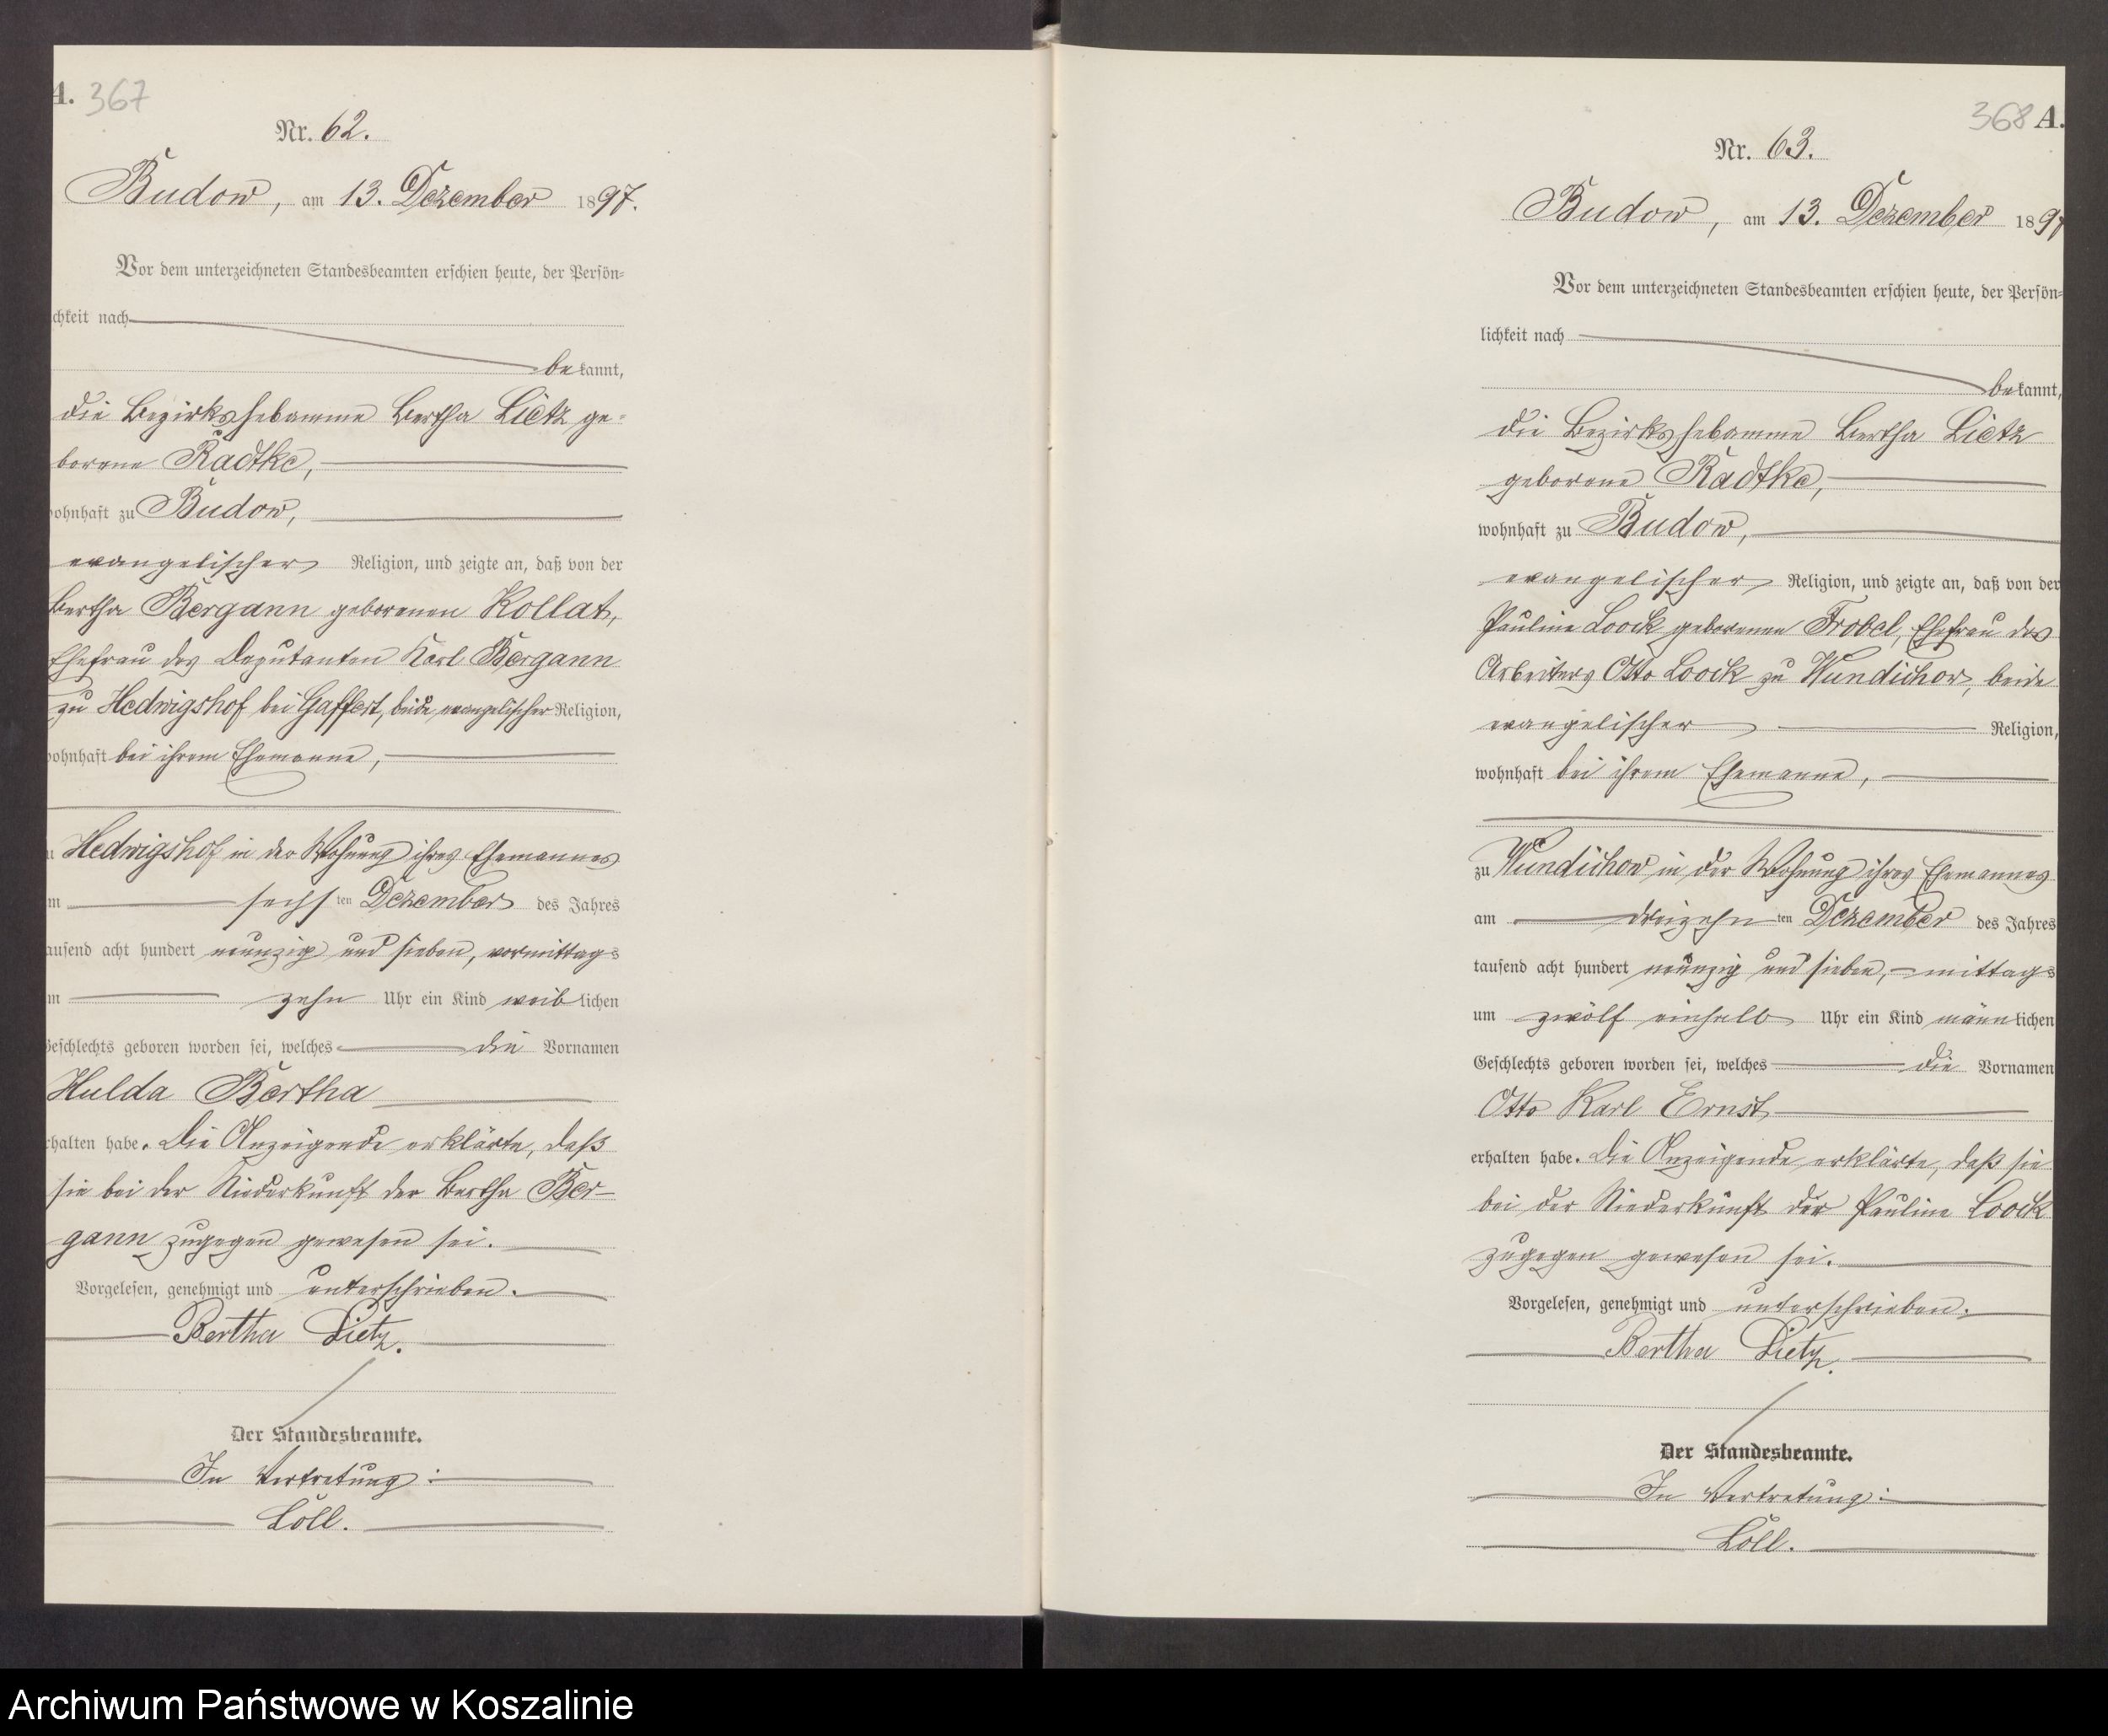 A. 367
Nr. 62.
Budow, am 13. Dezember 1897.
Vor dem unterzeichneten Standesbeamten erschien heute, der Persön=
chkeit nach
bekannt,
die Bezirkshebamme Bertha Lietz ge=
borene Radtke,
wohnhaft zu Budow,
evangelischer Religion, und zeigte an, daß von der
Bertha Bergann geborenen Kollat,
Ehefrau des Deputanten Karl Bergann
zu Hedwigshof bei Gaffert, beide evangelischer Religion,
wohnhaft bei ihrem Ehemanne,
u Hedwigshof in der Wohnung ihres Ehemannes
m sechsten Dezember des Jahres
ausend acht hundert neunzig und sieben, vormittags
m zehn Uhr ein Kind weiblichen
Geschlechts geboren worden sei, welches die Vornamen
Hulda Bertha
rhalten habe. Die Anzeigende erklärte, daß
sie bei der Niederkunft der Bertha Ber-
gann zugegen gewesen sei.
Vorgelesen, genehmigt und unterschrieben.
Bertha Lietz.
Der Standesbeamte.
In Vertretung:
Löll.
368 A.
Nr. 63.
Budow, am 13. Dezember 1897
Vor dem unterzeichneten Standesbeamten erschien heute, der Persön=
lichkeit nach
bekannt,
die Bezirkshebamme Bertha Lietz
geborene Radtke,
wohnhaft zu Budow,
evangelischer Religion, und zeigte an, daß von der
Pauline Loock geborenen Frobel, Ehefrau des
Arbeiters Otto Loock zu Wundichow, beide
evangelischer Religion,
wohnhaft bei ihrem Ehemanne,
zu Wundichow in der Wohnung ihres Ehemannes
am dreizehnten Dezember des Jahres
tausend acht hundert neunzig und sieben, mittags
um zwölf einhalb Uhr ein Kind männlichen
Geschlechts geboren worden sei, welches die Vornamen
Otto Karl Ernst
erhalten habe. Die Anzeigende erklärte, daß sie
bei der Niederkunft der Pauline Loock
zugegen gewesen sei.
Vorgelesen, genehmigt und unterschrieben.
Bertha Lietz.
Der Standesbeamte.
In Vertretung:
Löll.
Archiwum Państwowe w Koszalinie